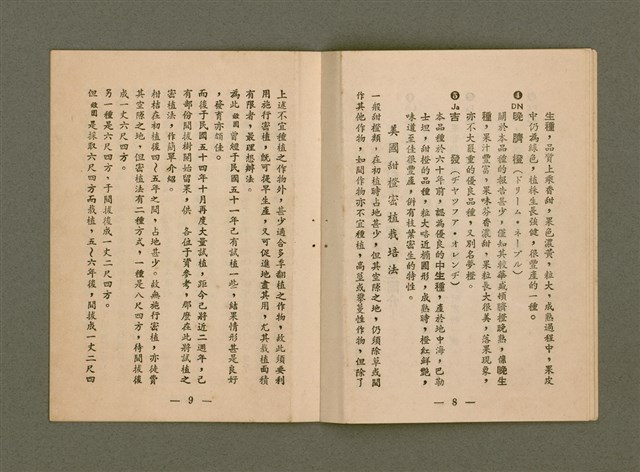 生種，品質上乘香甜，果色濃黃，粒大，成熟過程中，果皮
中仍為綠色，植株生長強健，很豐產的一種。
❹ DN 晚臍橙（ドリーム・ネーブル）
關於本品種的報告甚少，僅知其較華盛頓臍橙晚熟，像晚生
種，果汁豐富，果味芬香濃甜，果粒長大很美，落果現象，
亦不大嚴重的優良品種，又別名夢橙。
❺ Ja 吉　發（ヂヤツフア・オレンヂ）
本品種於六十年前，認為優良的中生種，產於地中海，巴勒
士坦，甜橙的品種，粒大略近橢圓形，成熟時，橙紅鮮艷，
味道至佳很豐產，倂有枝葉密生的特性。
美國甜橙密植栽培法
一般甜橙類，在初植時占地甚少，但其空隙之地，仍須除草或間
作其他作物，如間作物亦不宜種植，高莖或攀蔓性作物，但除了
— 8 —
上述不宜種植之作物外，甚少適合多季翻植之作物，故此須要利
用施行密植，就可提早生產，又可促進地盡其用，尤其栽植面積
有限者，最理想辦法。
為此敝園曾經于民國五十一年已有試植一些，結果情形甚是良好
，發育亦頗佳。
而後于民國五十四年十月再度大量試植，距今已將近二週年，已
有部份間拔樹開始留果，供　各位于資參考，那麼在此將試植之
密植法，作簡單介紹。
柑桔在初植後四～五年之間，占地甚少。故無施行密植，亦徒費
其空隙之地，但密植法有二種方式，一種是八尺四方，待間拔後
成一丈六尺四方。
另一種是六尺四方，于間拔後成一丈二尺四方。
但敝園是採取六尺四方而栽植，五～六年後，間拔成一丈二尺四
— 9 —